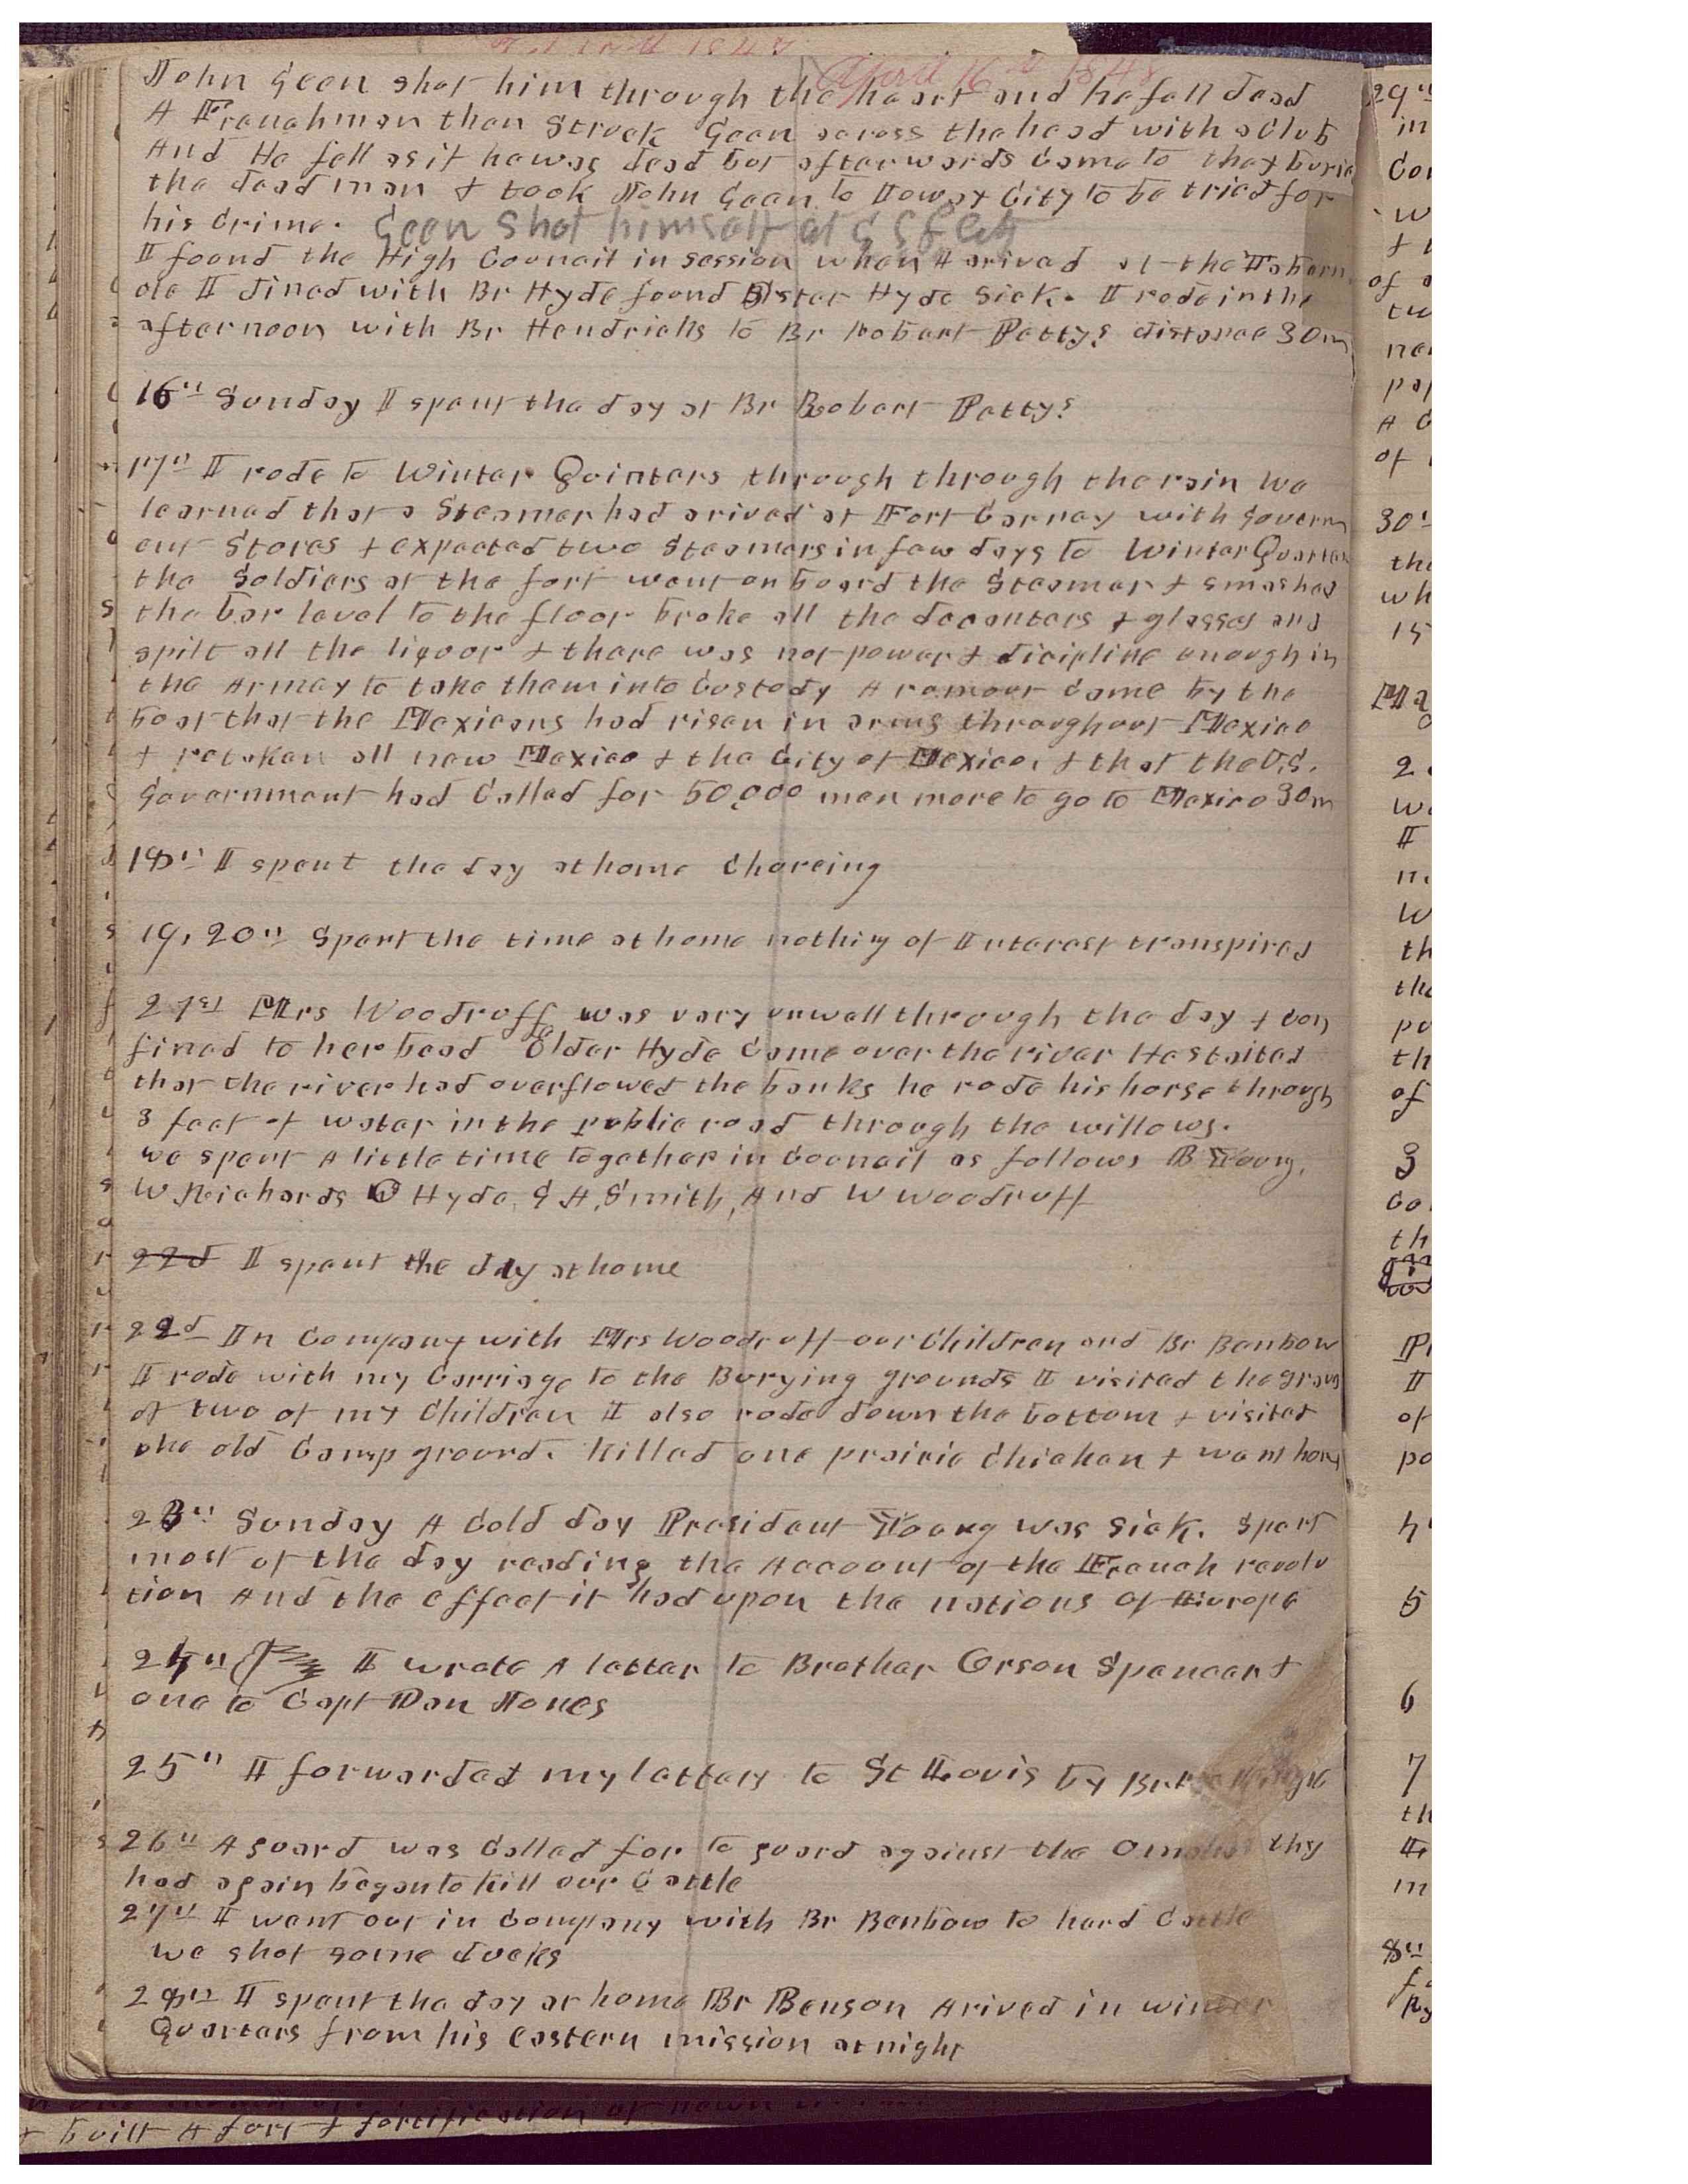 April 16th 1848
John Geen shot him through the heart and he fell dead
A Frenchman then struck Geen across the head with a club
And He fell as if he was dead but afterwords came to they buried
the dead man & took John Geen to Iowey City to be tried for
his crime. Geen shot himself at
I found the High Council in session when I arived at the Tabern
cle I dined with Br Hyde found Sister Hyde sick. I rode in the
afternoon with Br Hendricks to Br Robert Pettys distance 30 m
16th Sunday I spent the day at Br Robert Pettys
17th I rode to Winter Quinters through through the rain We
learned that a Steamer had arived at Fort Carney with Governm
ent Stores & expected two Steamers in few days to Winter Quarters
the Soldiers at the fort went on board the Steamer & smashed
the bar level to the floor broke all the decanters & glasses and
spilt all the liquor & there was not power & dicipline enough in
the Armey to take them into Custody A romour came by the
boat that the Mexicans had risen in arms throughout Mexico
& retaken all new Mexico & the City of Mexico, & that the U.S.
Government had Called for 50,000 men more to go to Mexico 30 m
18th I spent the day at home choreing
19, 20th Spent the time at home nothing of Interest transpired
21st Mrs Woodruff was very unwell through the day & con
fined to her bead Elder Hyde came over the river He staited
that the river had overflowed the banks he rode his horse through
3 feet of water in the public road through the willows.
we spent A little time together in Council as follows B Young,
W Richards O Hyde, G A, Smith, And W Woodruff
22d I spent the day at home
22d In Company with Mrs Woodruff our Children and Br Benbow
I rode with my Carriage to the Burying grounds I visited the grave
of two of my Children I also rode down the bottom & visited
the old Camp ground. Killed one prairie Chicken & went home
23rd Sunday A Cold day President Young was sick. Spent
most of the day reading the Account of the French revolu
tion And the effect it had upon the nations of Europe
24th I wrote A letter to Brother Orson Spencer &
one to Capt Dan Jones
25th I forwarded my letters to St Louis by Br
26th A guard was Called for to guard against the Omahas thy
had again began to kill our Cattle
27th I went out in Company with Br Benbow to herd Cattle
we shot some ducks
28th I spent the day at home Br Benson Arived in winter
Quarters from his eastern mission at night
& built A fort & fortification of